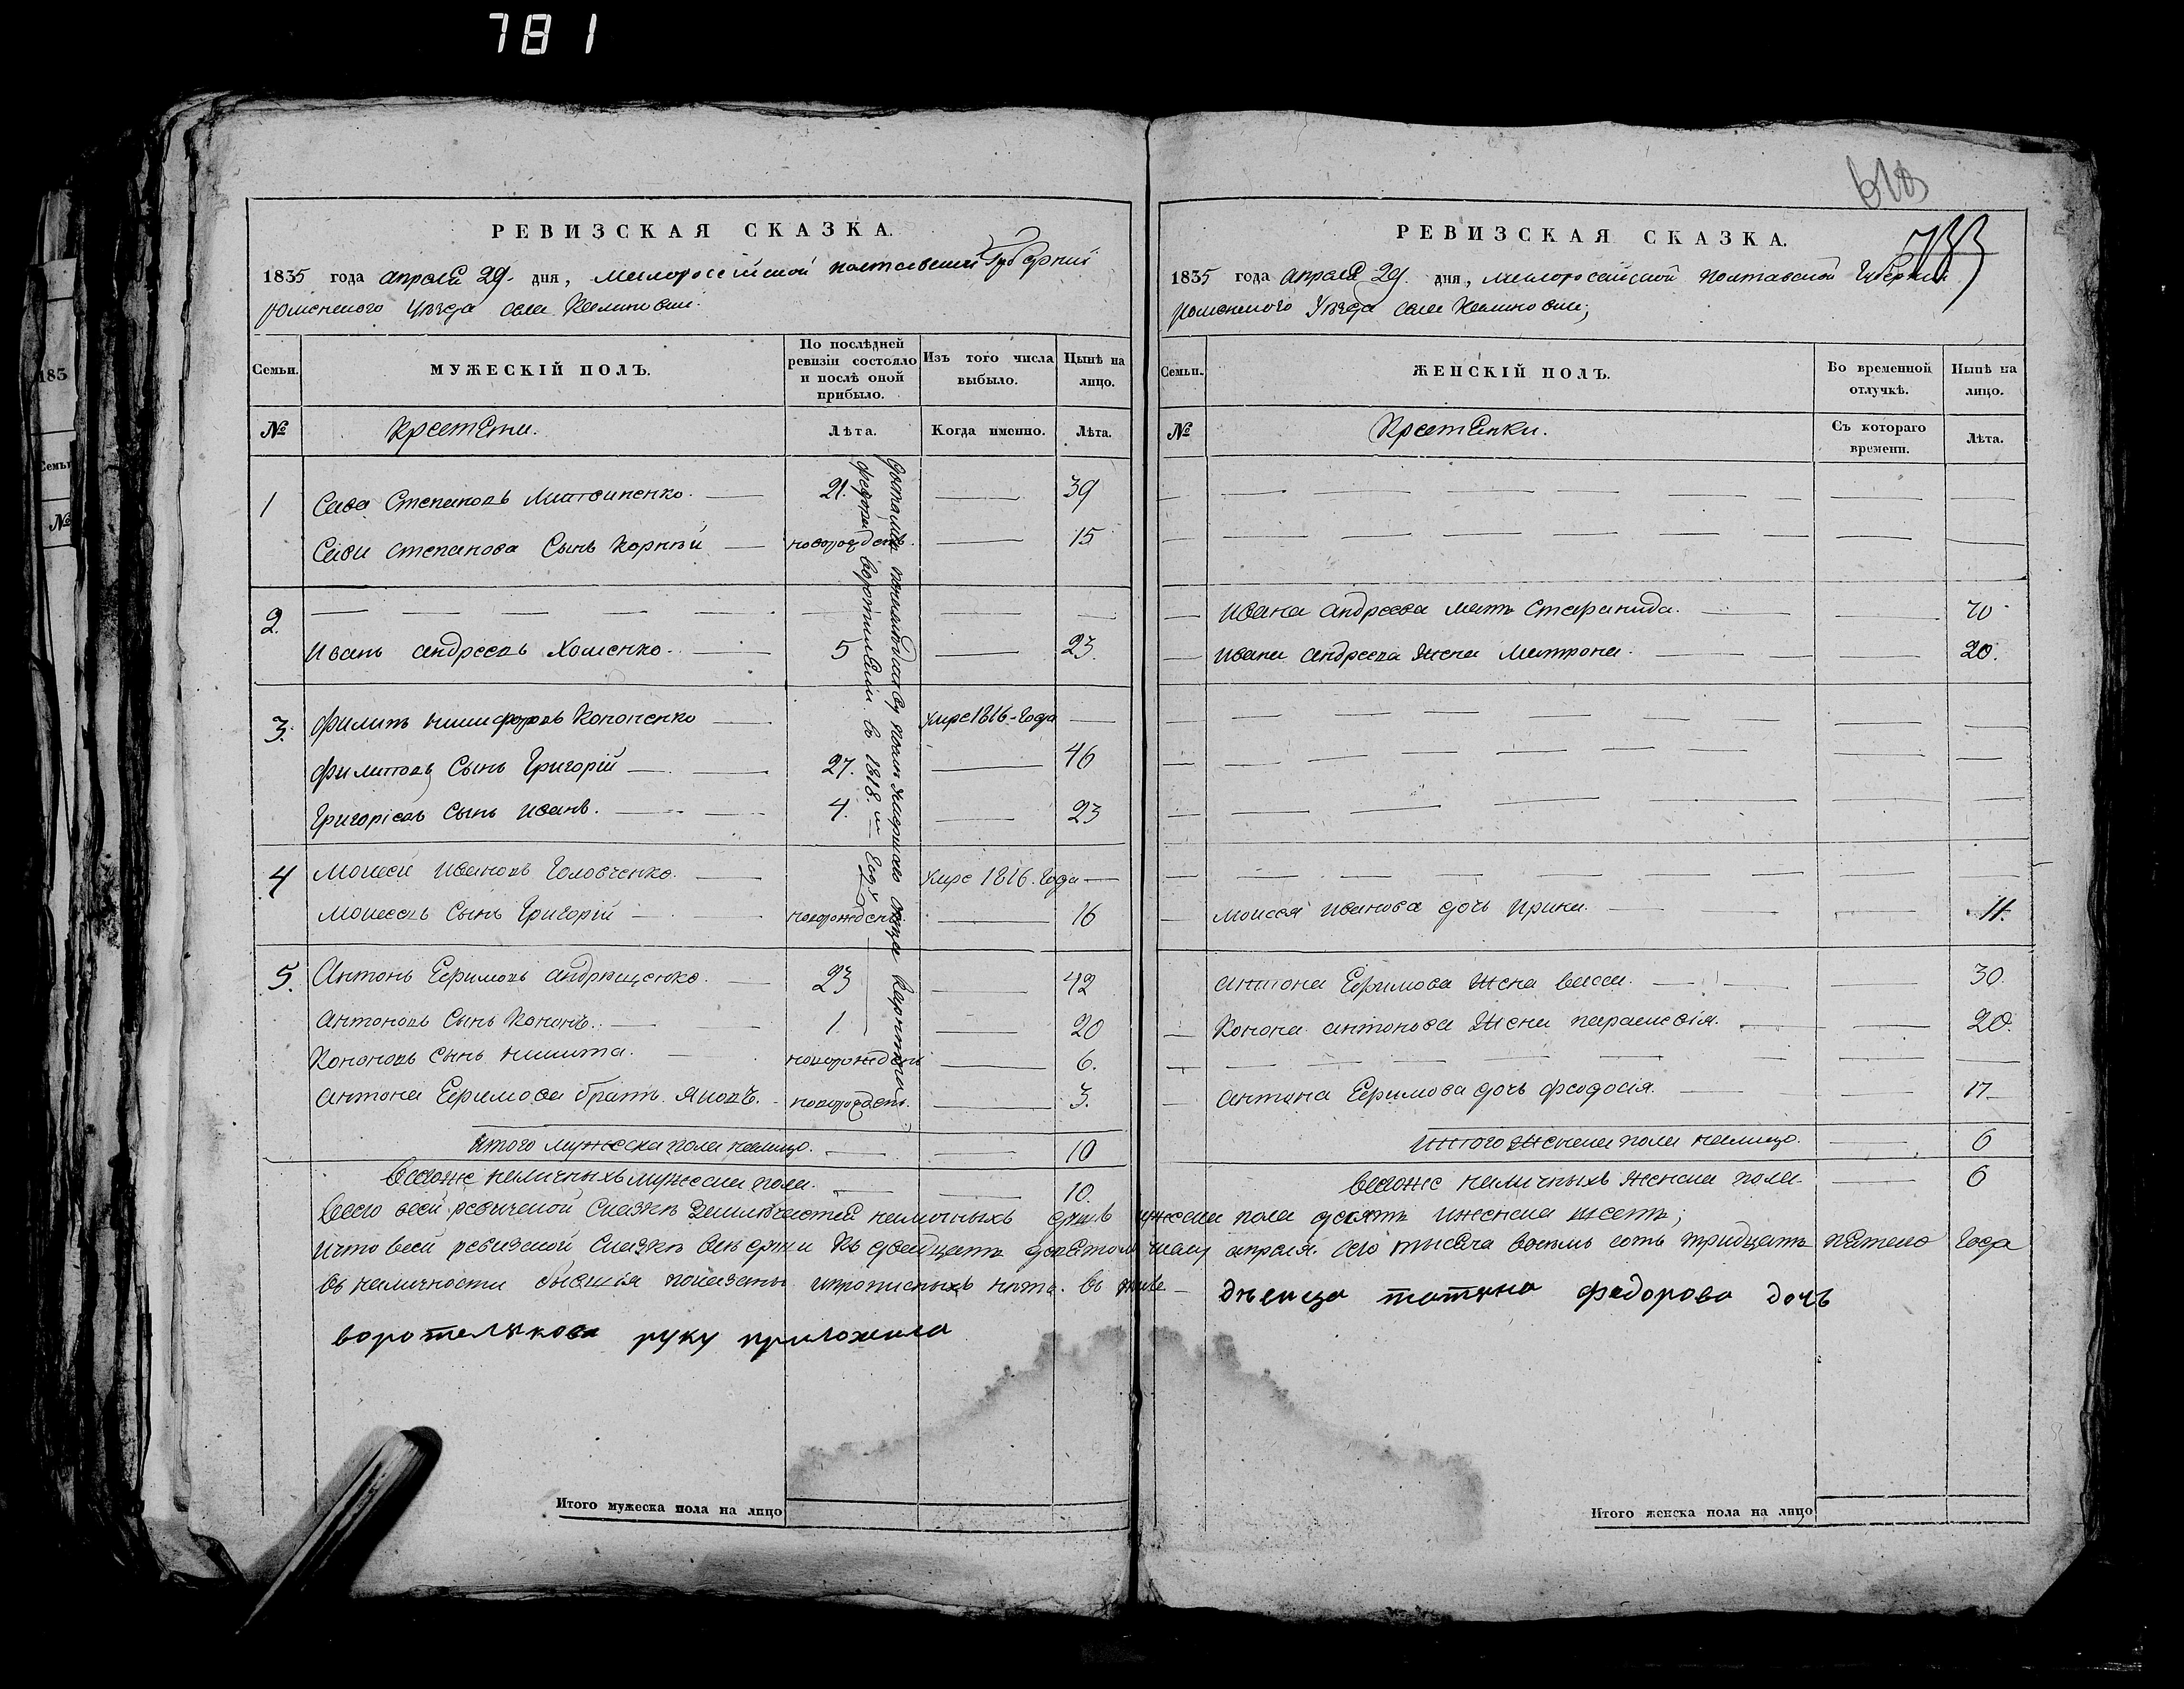 781
РЕВИЗСКАЯ СКАЗКА.
1835 года апреля 29. дня, малороссійской полтавской Губерніи
роменского Уѣзда села Калиновки.
Семьи.
МУЖЕСКІЙ ПОЛЪ.
По послѣдней ревизіи состояло и послѣ оной прибыло.
Изъ того числа выбыло.
Нынѣ на лицо.
№
Крестяни.
Лѣта.
Когда именно.
Лѣта.
1 Сава Степановъ 21. 39
Сави степанова Сынъ Корнѣй новорожденъ. 15
2.
Иванъ андреевъ Хоменко 5 23.
3. филипъ никифоровъ Кононенко умре 1816-Года
филиповъ Сынъ Григорій 27. 46
Григоріевъ Сынъ иванъ. 4. 23
4 Моисей ивановъ Головченко. умре 1816. Года
моисеевъ Сынъ Григорій новорожденъ 16
5. Антонъ Ефимовъ андрющенко. 23 42
антоновъ Сынъ Кононъ. 1. 20
Кононовъ Сынъ никита. новорожденъ 6.
антона Ефимова братъ яковъ. новорожденъ. 3.
итого мужеска пола налицо. 10
всегоже наличныхъ мужеска пола. 10.
въ 1818. м Году
РЕВИЗСКАЯ СКАЗКА.
618
783
1835 года апреля 29. дня, малоросейской полтавской Губерніи
роменского Уѣзда села Калиновки;
Семьи.
ЖЕНСКІЙ ПОЛЪ.
Во временной отлучкѣ.
Нынѣ на лицо.
№
Крестянки.
Съ котораго времени.
Лѣта.
ивана андреева мать Стефанида. 70
ивана андреева жена матрона. 20.
моисея иванова дочь ирина. 11.
антона Ефимова жена васса. 30.
Конона антонова жена параскевія. 20.
антона Ефимова дочь феодосія. 17
итого женска пола налицо. 6
всегоже наличныхъ женска пола 6
всего всей ревизской Сказкѣ наличныхъ душъ мужеска пола десять иженска шесть;
ичто всей ревизской Сказкѣ всѣ души къ двадцать девятому числу апреля. сего тысяча восемь сотъ тридцать пятого Года
въ наличности бывшія показаны ипрописныхъ нѣтъ. въ томъ дѣвица татяна федорова дочь
воротелякова руку приложила
Итого мужеска пола на лицо
Итого женска пола на лицо
183
Семьи
№